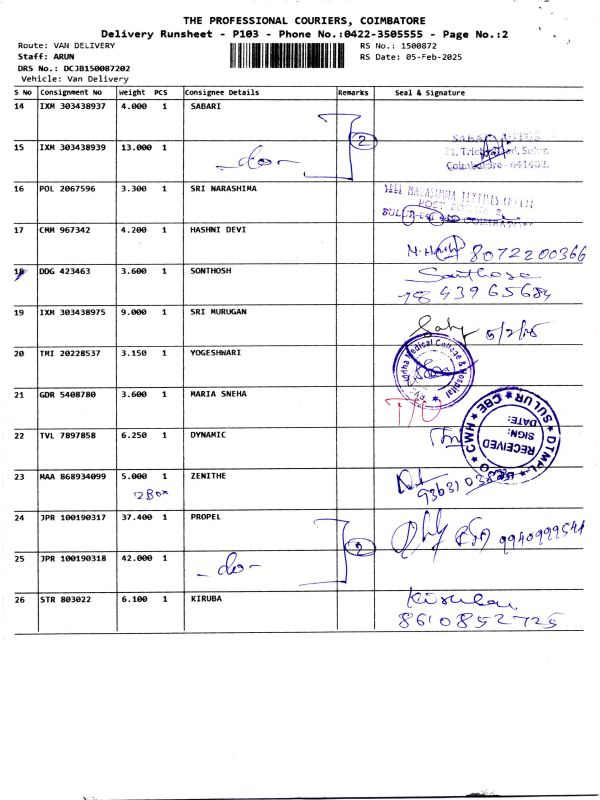 THE PROFESSIONAL COURIERS, COIMBATORE
Delivery Runsheet - P103 - Phone No.:0422-3505555 - Page No.:2
Route: VAN DELIVERY RS No.: 1500872
Staff: ARUN RS Date: 05-Feb-2025
DRS No.: DCJB150087202
Vehicle: Van Delivery
S No Consignment No Weight PCS Consignee Details Remarks Seal & Signature
14 IXM 303438937 4.000 1 SABARI
2
15 IXM 303438939 13.000 1 -do-
Coimbatore 641402
16 POL 2067596 3.300 1 SRI NARASHIMA
17 CMM 967342 4.200 1 HASHNI DEVI
8072200366
18 DDG 423463 3.600 1 SONTHOSH
Santhosh
78 43965684
19 IXM 303438975 9.000 1 SRI MURUGAN
5/2/25
20 TMI 20228537 3.150 1 YOGESHWARI
Medical College & Hospital
21 GDR 5408780 3.600 1 MARIA SNEHA
22 TVL 7897858 6.250 1 DYNAMIC
DTMPL CWH CBE SULUR
RECEIVED
SIGN:
DATE:
23 MAA 868934099 5.000 1 ZENITHE
2 Box
24 JPR 100190317 37.400 1 PROPEL
2
9940999544
25 JPR 100190318 42.000 1 -do-
26 STR 803022 6.100 1 KIRUBA
8610852725